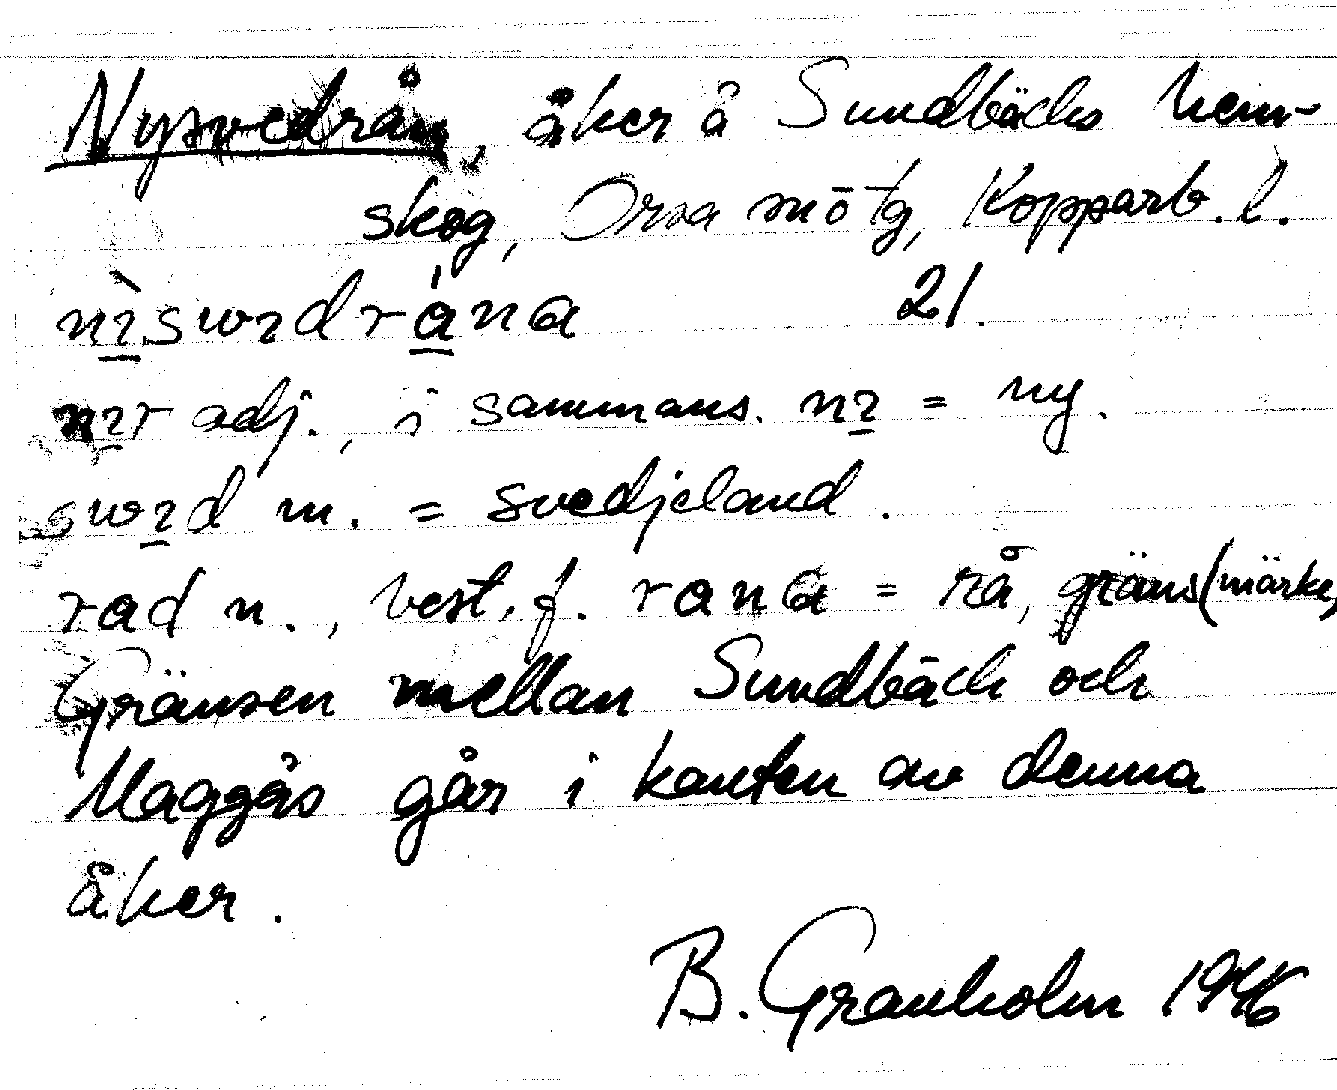 Nysvedrån, åker å Sundbäcks hem-
skog, Orsa m ö tg, Kopparb. l.
21.
adj., i sammans. = ny.
m. = svedjeland.
rad n., best. f. rana = rå, gräns(märke)
Gränsen mellan Sundbäck och
Maggås går i kanten av denna
åker.
B. Granholm 1946